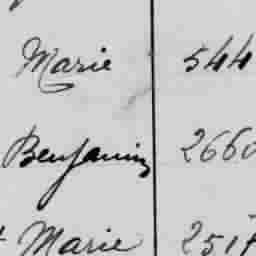 Marie 544
Benjamin 2660
Marie 2517